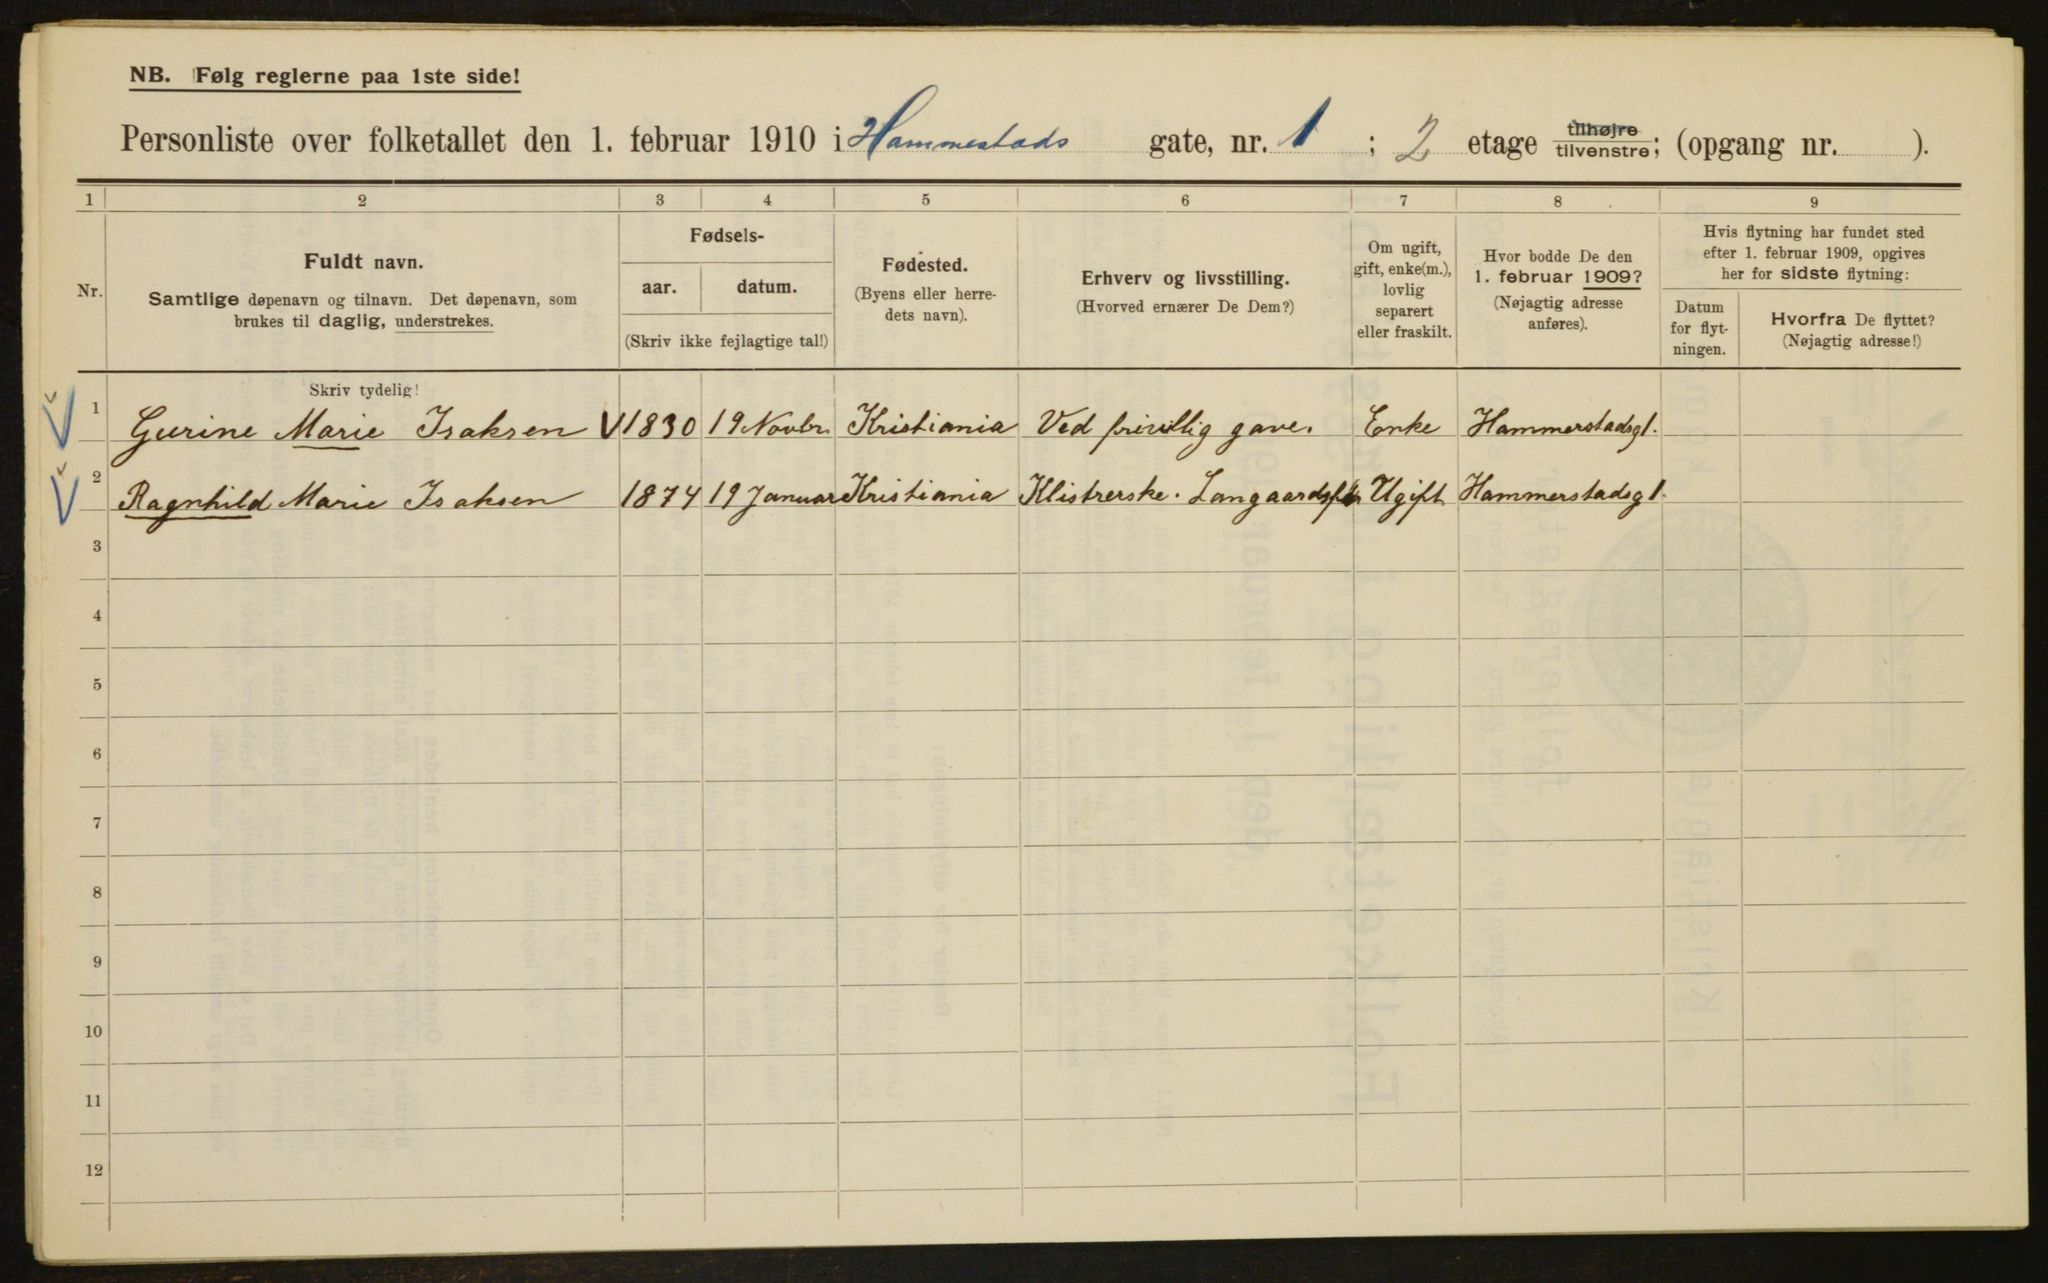 NB. Følg reglerne paa 1ste side!
Personliste over folketallet den 1. februar 1910 i Hammestads gate, nr. 1 ; 2 etage tilhøjre tilvenstre; (opgang nr. ).
1 2 3 4 5 6 7 8 9
Nr.
Fuldt navn.
Samtlige døpenavn og tilnavn. Det døpenavn, som
brukes til daglig, understrekes.
Fødsels-
aar. datum.
(Skriv ikke fejlagtige tal!)
Fødested.
(Byens eller herre-
dets navn).
Erhverv og livsstilling.
(Hvorved ernærer De Dem?)
Om ugift,
gift, enke(m.),
lovlig
separert
eller fraskilt.
Hvor bodde De den
1. februar 1909?
(Nøjagtig adresse
anføres).
Hvis flytning har fundet sted
efter 1. februar 1909, opgives
her for sidste flytning:
Datum
for flyt-
ningen.
Hvorfra De flyttet?
(Nøjagtig adresse!)
Skriv tydelig!
1 Gurine Marie Isaksen 1830 19 Novbr. Kristiania Ved frivillig gave. Enke Hammerstadsg 1.
2 Ragnhild Marie Isaksen 1874 19 Januar Kristiania Klistrerske. Ugift Hammerstadsg 1.
3
4
5
6
7
8
9
10
11
12